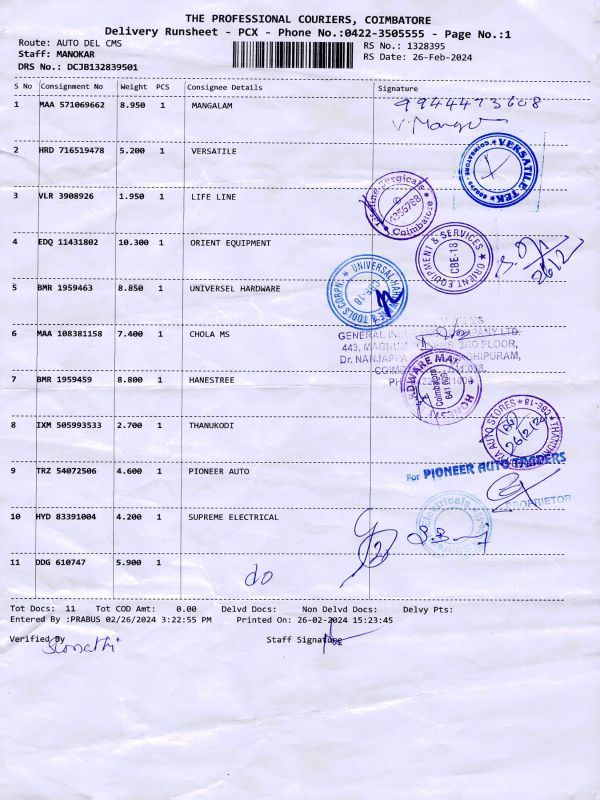 THE PROFESSIONAL COURIERS, COIMBATORE
Delivery Runsheet - PCX - Phone No.:0422-3505555 - Page No.:1
Route: AUTO DEL CMS
RS No.: 1328395
Staff: MANOKAR
RS Date: 26-Feb-2024
DRS No.: DCJB132839501
S No Consignment No Weight PCS Consignee Details Signature
1 MAA 571069662 8.950 1 MANGALAM
9944473608
2 HRD 716519478 5.200 1 VERSATILE
VERSATILE TEK
3 VLR 3908926 1.950 1 LIFE LINE
Coimbatore
4 EDQ 11431802 10.300 1 ORIENT EQUIPMENT
ORIENT EQUIPMENT & SERVICES
CBE-18
26/2
5 BMR 1959463 8.850 1 UNIVERSEL HARDWARE
UNIVERSAL HARDWARE & TOOLS CORPN
6 MAA 108381158 7.400 1 CHOLA MS
443, MAGNUM 3RD FLOOR,
7 BMR 1959459 8.800 1 HANESTREE
Coimbatore
8 IXM 505993533 2.700 1 THANUKODI
AUTO STORES CBE-18
26/2/24
9 TRZ 54072506 4.600 1 PIONEER AUTO
For PIONEER AUTO TRADERS
PROPRIETOR
10 HYD 83391004 4.200 1 SUPREME ELECTRICAL
11 DDG 610747 5.900 1
do
Tot Docs: 11 Tot COD Amt: 0.00 Delvd Docs: Non Delvd Docs: Delvy Pts:
Entered By :PRABUS 02/26/2024 3:22:55 PM Printed On: 26-02-2024 15:23:45
Verified By Staff Signature